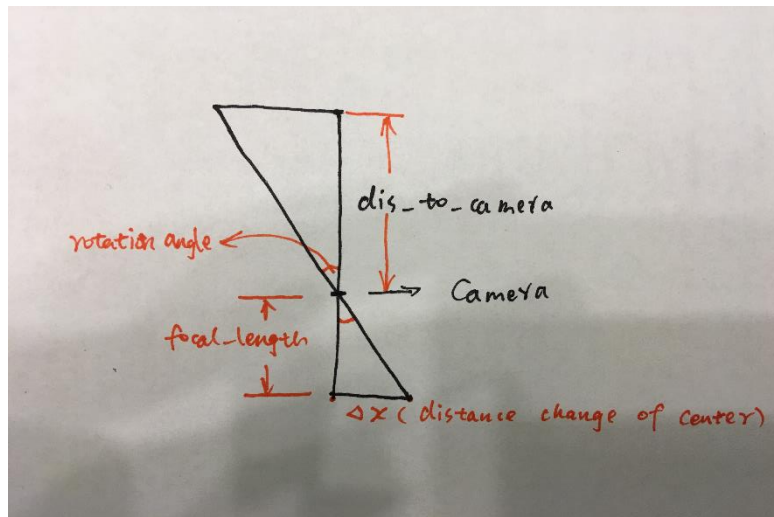 dis_to_camera
rotation angle
Camera
focal_length
Δx ( distance change of center)